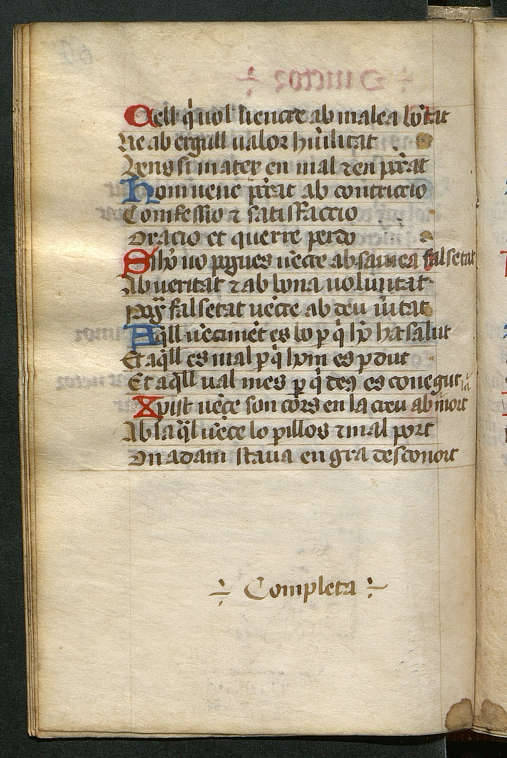 Cell q̄ uol uencre ab malea bōtat
Ve ab ergull ualor humilitat
Vens si matex en mal ⁊ en pecat
Hom uenc pecat ab contriccio
Comfessio ⁊ satisfaccio
Oracio et querre perdo
Si hō no pogues uēcre ab falsetat
Ab ueritat ⁊ ab bona uoluntat
falsetat uēcre ab deu uitat
Aq̄ll uēcimēt es lo p q̄ hō ha salut
Et aq̄ll es mal p q̄ hom es pdut
Et aq̄ll ual mes p q̄ deus es conegut
Xpist uēçe son cors en la creu ab mort
Ab la q̄l uēce lo pillos ⁊ mal port
On adam staua en gra desconort
Completa